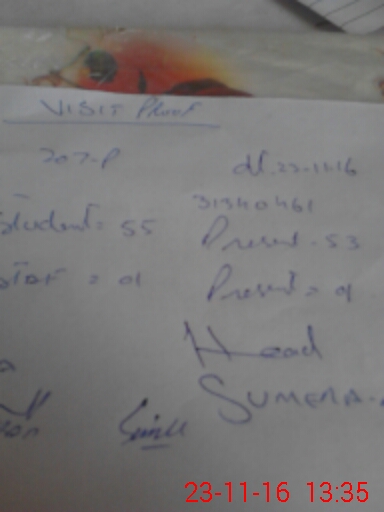 VISIT Proof
207-P dt. 23-11-16
31340461
Student = 55 Present - 53
= 01 Present = 01
Head
SUMERA
23-11-16 13:35